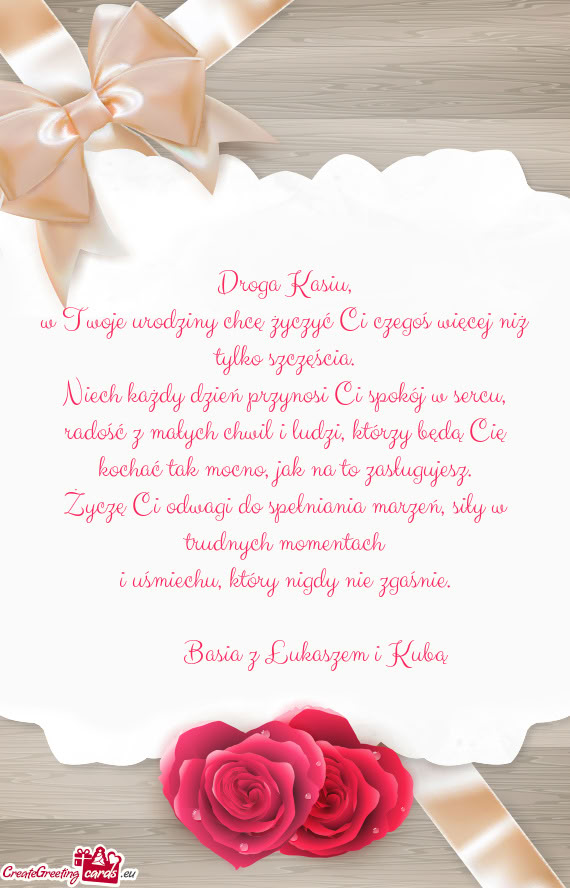 Droga Kasiu,
w Twoje urodziny chcę życzyć Ci czegoś więcej niż
tylko szczęścia.
Niech każdy dzień przynosi Ci spokój w sercu,
radość z małych chwil i ludzi, którzy będą Cię
kochać tak mocno, jak na to zasługujesz.
Życzę Ci odwagi do spełniania marzeń, siły w
trudnych momentach
i uśmiechu, który nigdy nie zgaśnie.
Basia z Łukaszem i Kubą
CreateGreeting cards .eu